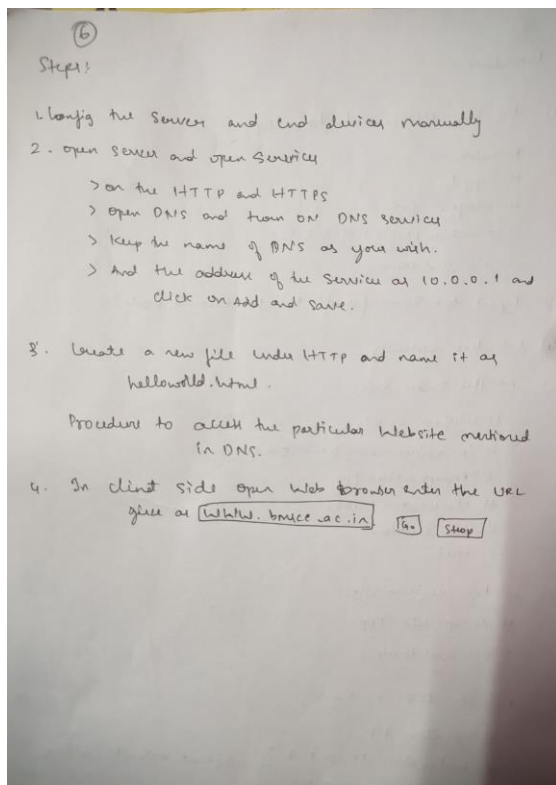 6
Steps:
1. Config the Server and end devices manually
2. open server and open Services
> on the HTTP and HTTPS
> open DNS and turn ON DNS services
> Keep the name of DNS as your wish.
> And the address of the Service as 10.0.0.1 and
click on Add and save.
3. Create a new file under HTTP and name it as
helloworld.html.
Procedure to access the particular Website mentioned
in DNS.
4. In client side open web browser enter the URL
give as www.bmsce.ac.in Go Stop